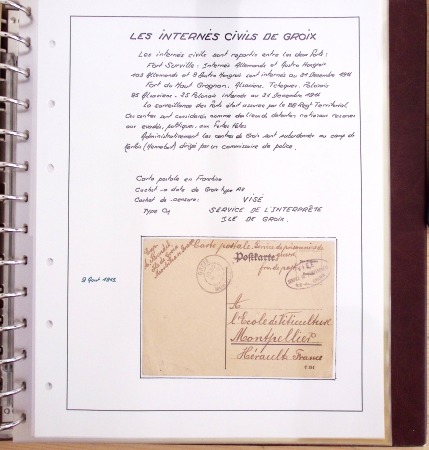 LES INTERNÉS CIVILS DE GROIX
Les internés civils sont repartis entre les deux Forts:
Fort Surville: Internés Allemands et Austro Hongrois
103 Allemands et 8 Austro Hongrois sont internés au 31 Decembre 1916
Fort du Haut Grognon, Alsaciens, Tcheques, Polonais
Alsaciens - 25 Polonais internés au 31 Decembre 1916
La surveillance des Forts etait assurée par le 88 Regt Territorial
Ces centres sont considérés comme des lieux de detention
aux evadés, politiques, aux Fortes Têtes
Administrativement les centres de Groix sont subordonnés au camp de
Kerlois (Hennebont) dirigé par un commissaire de police.
Carte postale en Franchise
Cachet a date de Groix type
Cachet de censure: VISÉ
Type SERVICE DE L'INTERPRÈTE
ILE DE GROIX.
9 Aout 1915.
Carte postale. Service de prisonniers de
guerre
Postkarte
franc de port
A
l'Ecole de Viticulture
Montpellier
Hérault. France